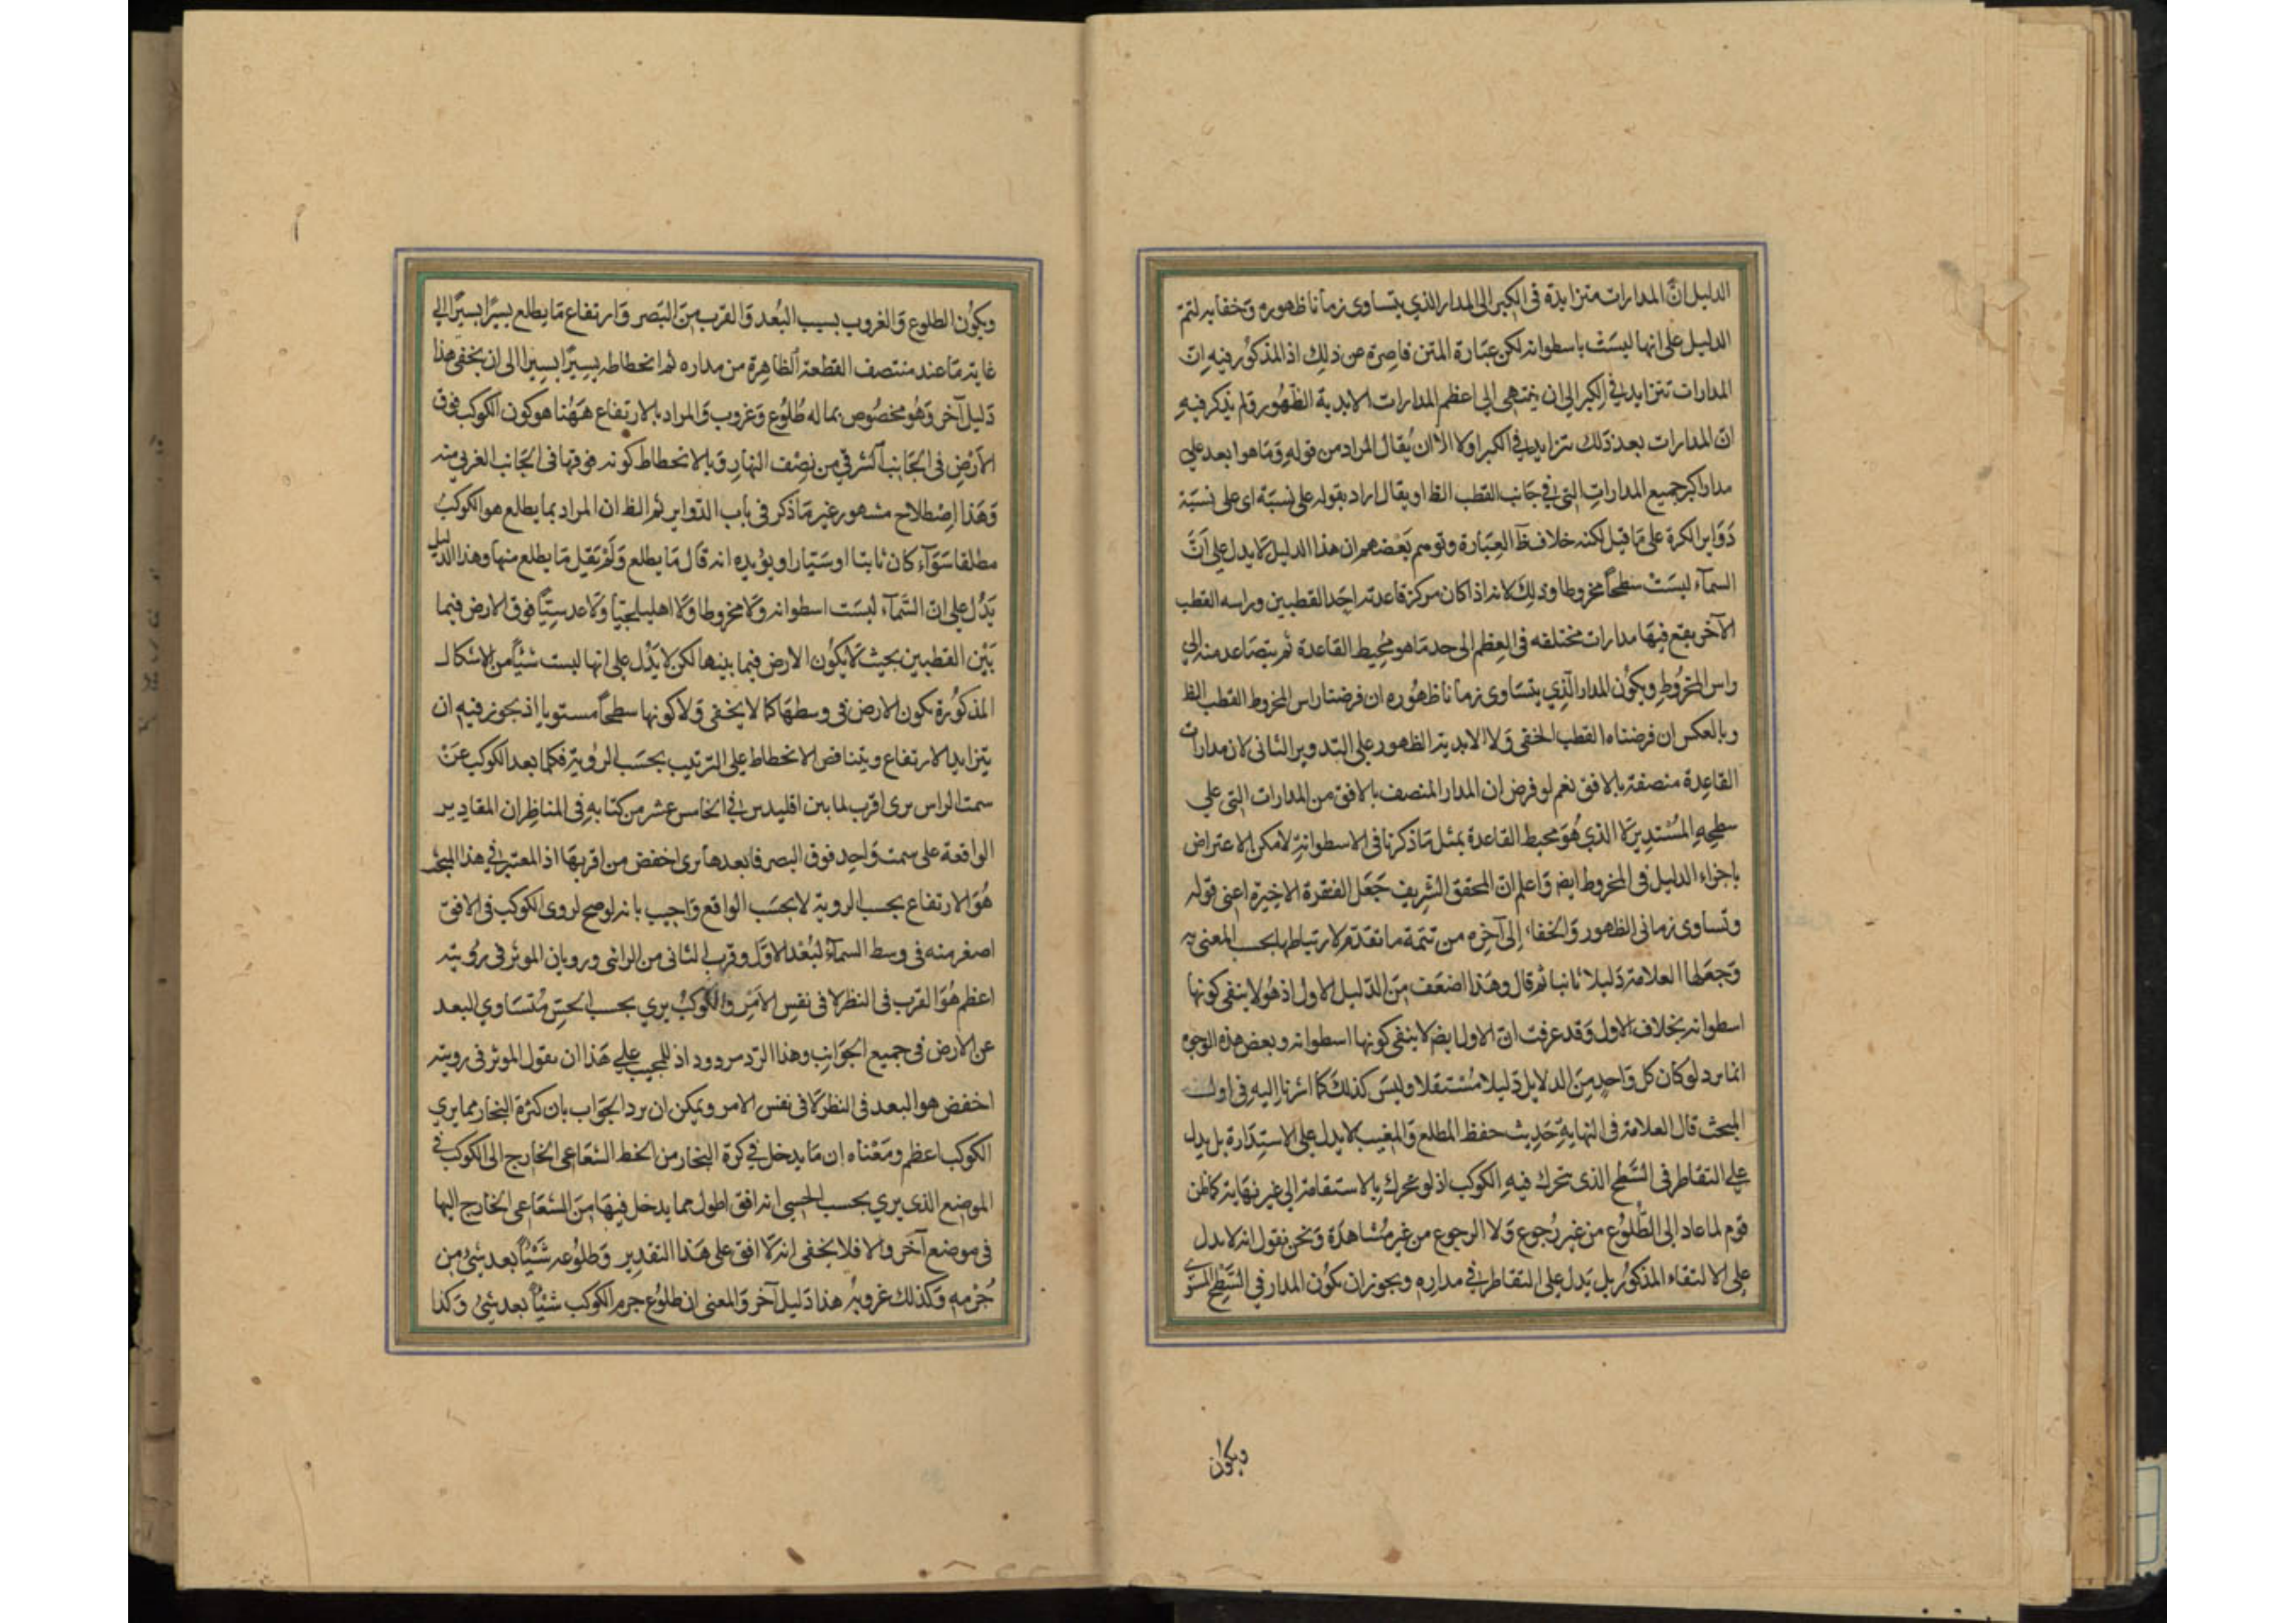 الدليل انّ المدارات متزايدة فى الكبر الى المدار الذي يتساوى زمانا ظهوره وخفايه لتمّ
الدليل على انها ليست باسطوانه لكن عبارة المتن قاصرة عن ذلك اذ المذكور فيه انّ
المدارات تتزايد في الكبر الى ان ينتهى الى اعظم المدارات الابدية الظهور ولم يذكر فيه
انّ المدارات بعد ذلك تتزايد في الكبر اولا الا ان يُقال المراد من قوله وما هو ابعد على
مدار اكبر جميع المدارات التي في جانب القطب الظ او يقال اراد بقوله على نسبة اى على نسبة
دَوَاير الكرة على ما قيل لكنه خلاف ظَ العبارة وتوهم بعضهم ان هذا الدليل لا يدل على انّ
السمآء ليست سطحاً مخروطا وذلك لانه اذا كان مركز قاعدته احد القطبين وراسه القطب
الآخر يقع فيها مدارات مختلفه فى العظم الى حد ما هو محيط القاعدة ثم يتصاعد منه الى
راس المخروط ويكون المدار الذي يتساوى زمانا ظهوره ان فرضنا راس المخروط القطب الظ
وبالعكس ان فرضناه القطب الخفى ولا الابدية الظهور على التدوير الثانى لان مدارات
القاعدة منصفة بالافق نعم لو فرض ان المدار المنصف بالافق من المدارات التى على
سطحه المستدير لا الذي هو محيط القاعدة بمثل ما ذكرنا فى الاسطوانة لامكن الاعتراض
باجراء الدليل فى المخروط ايضَ واعلم انّ المحقق الشريف جَعَل الفقرة الاخيرة اعنى قوله
وتساوى زمانى الظهور والخفاء الى آخره من تتمة ما تقدّم لارتباطها بحسب المعنى به
وجَعَلها العلامة دَليلا ثانيا ثم قال وهَذا اضعَف مِنَ الدّليل الاول اذ هُو لا ينفى كونها
اسطوانه بخلاف الاول وَقد عرفت انّ الاول ايضَ لا ينفى كونها اسطوانه وبعض هذه الوجوه
انما يرد لو كان كل وَاحدٍ مِنَ الدلايل دَليلا مُستقلا وليسَ كذلك كما اشرنا اليه فى اول
المبحث قال العلامة فى النهاية حَدِيث حفظ المطلع والمغيب لا يدل على الاستدارة بل يدل
على التقاطر فى السّطح الذى تتحرك فيه الكوكب اذ لو تحرك بالاستقامة الى غير نهاية كما ظن
قوم لما عاد الى الطلوع من غير رُجوع وَلا الرجوع من غير مُشاهدَة وَنحن نقول انه لا يدل
على الالتقاء المذكور بل يَدل على التقاطر في مداره ويجوز ان يكون المدار في السَّطح المستوى
ويكون
ويكون الطلوع وَالغروب بسبب البُعد وَالقرب مِنَ البَصر وَارتفاع مَا يطلع يسيرًا يسيرًا الى
غاية مَا عند منتصف القطعة الظاهرة من مداره ثم انحطاطه يسيرًا يسيرا الى ان يخفى هذا
دَليل آخر وَهُو مخصُوص بما له طُلُوع وَغروب وَالمراد بالارتفاع هَهُنا هو كون الكوكب فوق
الارْضِ فى الجَانب الشرقي من نصف النهار وَبالانحطاط كونه فوقها فى الجَانب الغربي منه
وَهَذا اِصْطلاح مشهور غير مَا ذكر فى باب الدّواير ثم الظ ان المراد بما يطلع هو الكوكبُ
مطلقا سَوَآء كان ثابتا او سَيّارا ويؤيده انه قال مَا يطلع وَلَمْ يَقل مَا يطلع منها وهذا الدّليل
يَدُل على انّ السَّمآء ليسَت اسطوانه وَلا مخروطا وَلا اهليلجيّا وَلا عدسِيّا فوق الارض فيما
بَيْن القطبين بحيث لا يكون الارض فيما بينها لكن لا يَدْل على انها ليست شيئاً من الاشكال
المذكورة بكون الارض فى وسطهَا كما لا يخفى وَلا كونها سطحًا مستويا اذ يجوز فيه ان
يتزايد الارتفاع ويتناقص الانحطاط على الترتيب بحسَب الروية فكلما بعد الكوكب عَنْ
سمت الراس يرى اقرب لما بين اقليدس في الخامس عشر من كتابه فى المناظر ان المقادير
الواقعة على سمت وَاحِد فوق البصر فابعدها يرى اخفض من اقربهَا اذ المعتبر في هذا المبحث
هُوَ الارتفاع بحسب الروية لا بحسَب الواقع وَاجيب بانه لو صح لروى الكوكب فى الافق
اصغر منه فى وسط السمآء لبُعْد الاوّل وقرب الثانى من الرائى ورد بان الموثر فى رؤيته
اعظم هُوَ القرب فى النظر لا فى نفس الامْرِ والكوكبُ يري بحسب الحسّ مُتساوي البعد
عن الارض فى جميع الجَوَانب وهذا الرّد مردود اذ للمجيب على هَذا ان يقول الموثر فى رويته
اخفض هو البعد فى النظر لا فى نفس الامر ويمكن ان يرد الجَوَاب بان كثرة البخار مما يري
الكوكب اعظم ومَعْناه ان مَا يدخل في كرة البخار من الخط الشعاعى الخارج الى الكوكب في
الموضع الذى يري بحسب الحسّ انه افق اطول مما يدخل فيهَا مِنَ الشعَاعى الخارج اليها
فى موضع آخَر والا فلا يخفى انه لا افق على هَذا التقدِير وَطلوُعه شَيْئًا بعد شئ من
جُرْمه وَكذلك غروبه هذا دَليل آخر وَالمعنى ان طلوُع جرم الكوكب شيْئًا بعد شئ وَكذا